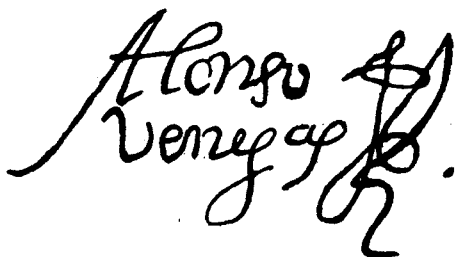 Alonso
venegas